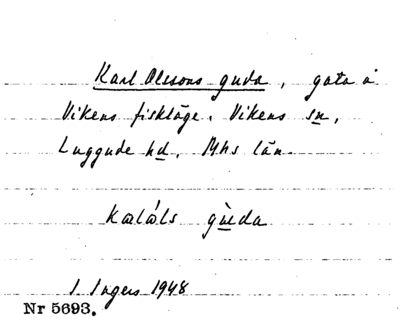 Karl Olssons guda, gata å
Vikens fiskläge. Vikens sn,
Luggude hd, Mhs län
Kalåls gùda
I. Ingers 1948
Nr 5693.